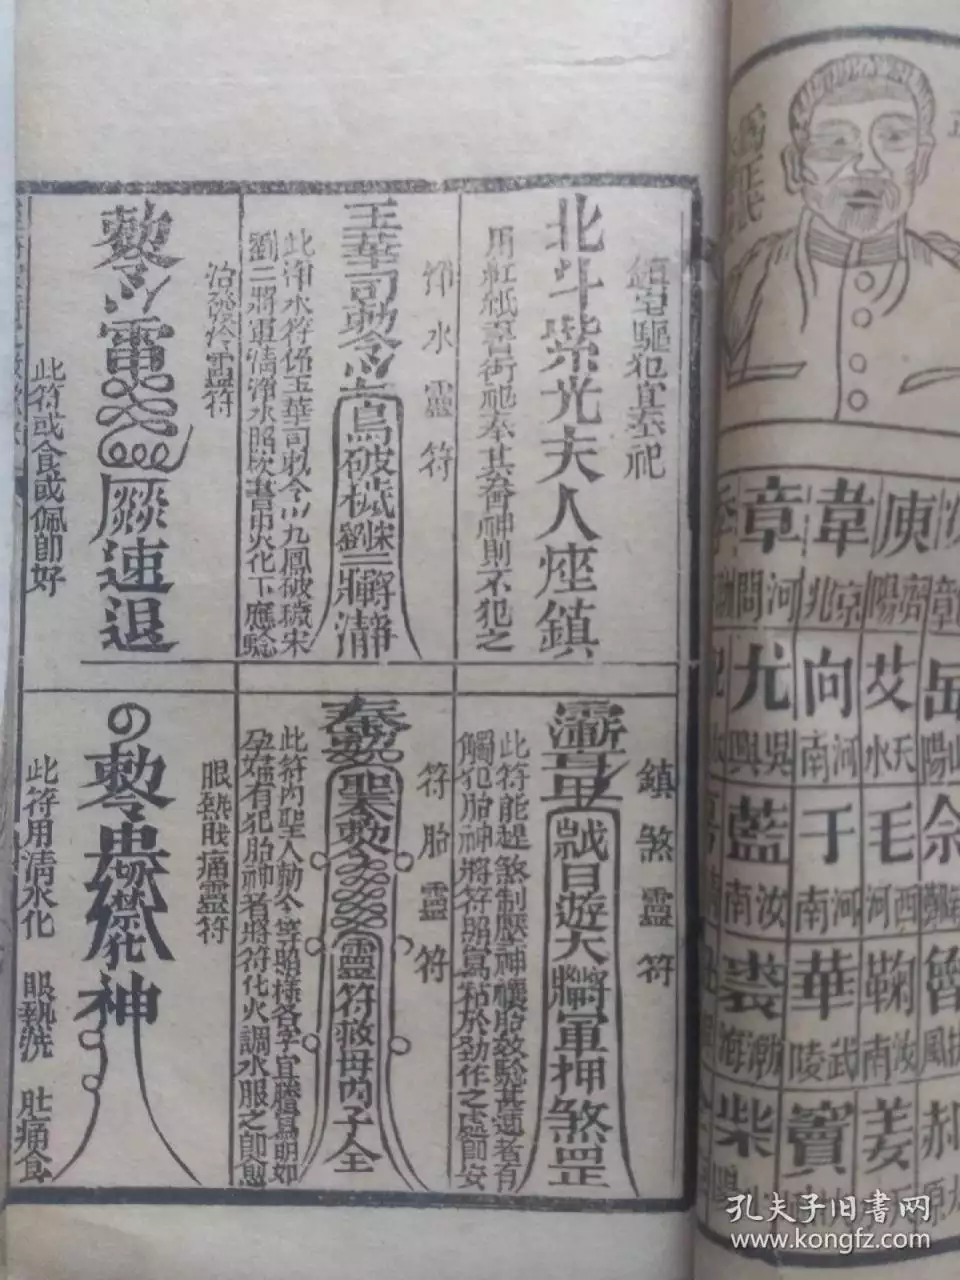 鎮宅驅犯宜奉祀
北斗紫光夫人座鎮
用紅紙書街祀奉其番神則不犯之
淨水靈符
玉華司勅令
鳥破穢宋劉二將軍清靜
此淨水符係玉華司勅令九鳳破穢宋
劉二將軍清淨水照次書中火化下應驗
治發冷靈符
勅令
雷
速退
此符或食或佩即好
鎮煞靈符
日遊大將軍押煞罡
此符能趕煞制壓神禳胎效驗甚速者有
觸犯胎神將符照寫粘於勁作之處即安
符胎靈符
奉勅聖人勅令
靈符救母內子全
此符內聖人勅令等照樣各字宜謄寫明如
孕婦有犯胎神者將符化火調水服之即愈
眼熱眼痛靈符
勅令
神
此符用清水化 眼熱洗 肚痛食
章 韋 庾
河間 京兆
尤 向 艾 岳
吳興 河南 天水 山陽
藍 于 毛 佘
汝南 河南 西河
裘 華 鞠 魯
渤海 武陵 汝南 扶風
柴 竇 姜 郝
孔夫子旧书网
www.kongfz.com